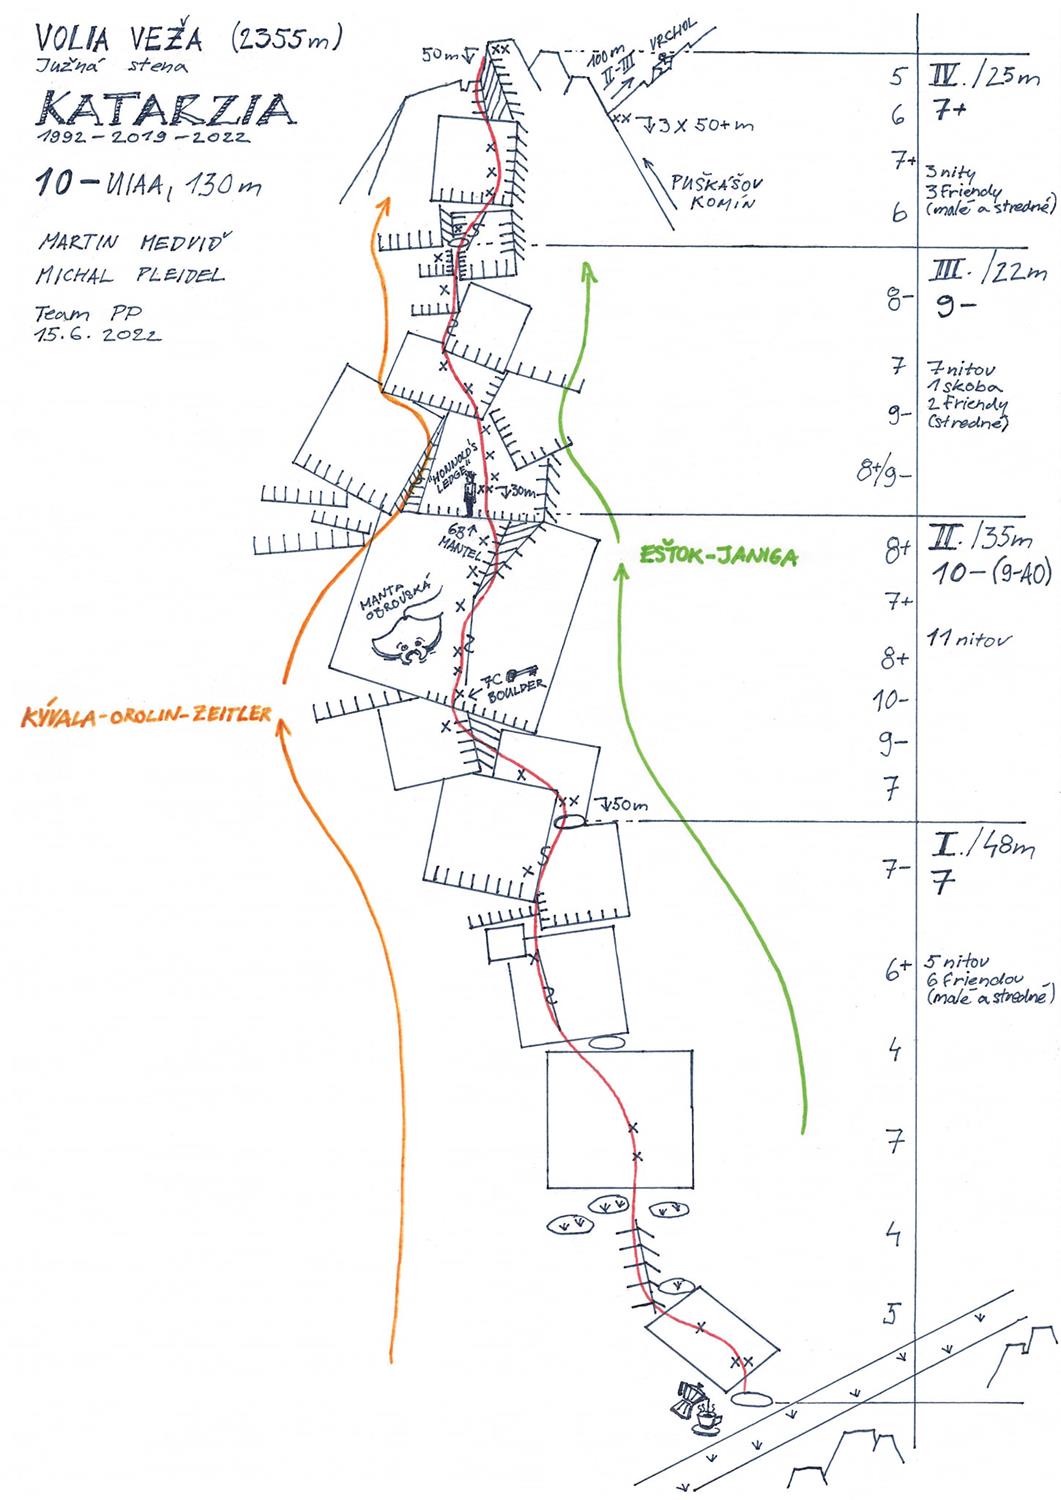 VOLIA VEŽA (2355m)
Južná stena
KATARZIA
1992-2019-2022
10- UIAA, 130m
MARTIN MEDVIĎ
MICHAL PLEIDEL
Team PP
15.6. 2022
50m
100m
II-III
VRCHOL
3 x 50+m
PUŠKÁŠOV
KOMÍN
5
6
7+
6
IV. /25m
7+
3 nity
3 Friendy
(malé a stredné)
8-
7
9-
8+/9-
III. /22m
9-
7 nitov
1 skoba
2 Friendy
(stredné)
"HONNOLD'S
LEDGE"
30m
6B
MANTEL
MANTA
OBROVSKÁ
7C
BOULDER
EŠTOK-JANIGA
KÝVALA-OROLIN-ZEITLER
8+
7+
8+
10-
9-
7
II. /35m
10- (9-A0)
11 nitov
50m
7-
6+
4
7
4
5
I. /48m
7
5 nitov
6 Friendov
(malé a stredné)